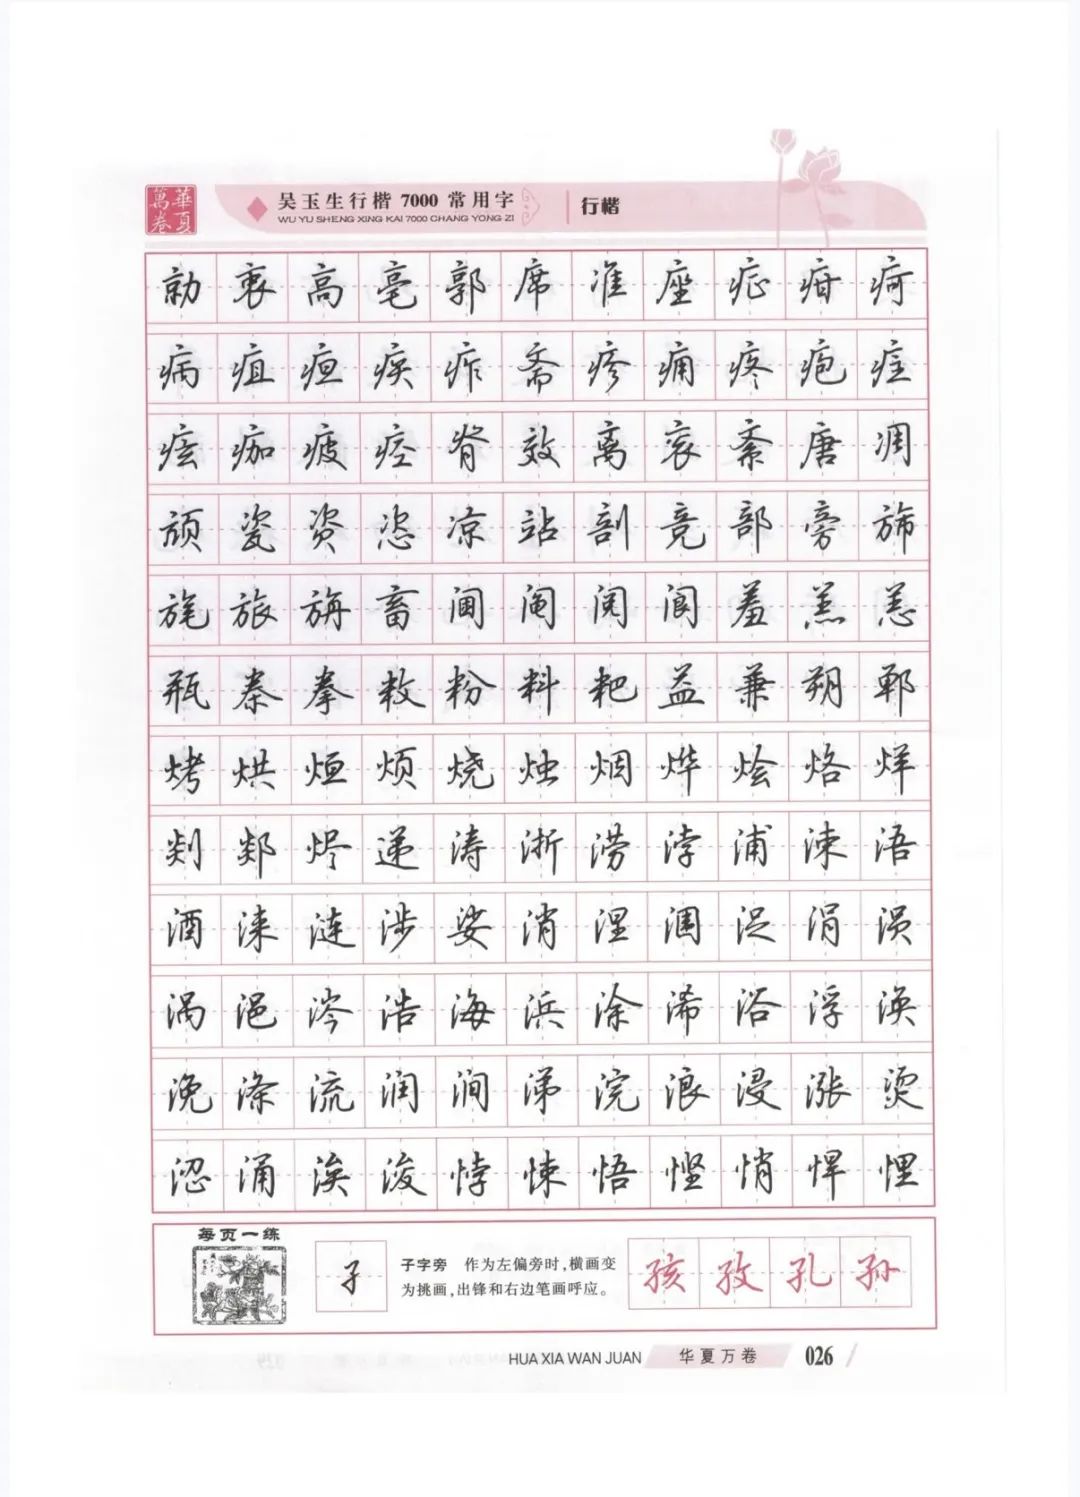 華夏萬卷
吴玉生行楷 7000 常用字
WU YU SHENG XING KAI 7000 CHANG YONG ZI
行楷
勍 衷 高 亳 郭 席 准 座 症 疳 疴
病 疽 疸 疾 痄 斋 疹 痈 疼 疱 疰
痃 痂 疲 痉 脊 效 离 衮 紊 唐 凋
颃 瓷 资 恣 凉 站 剖 竞 部 旁 旆
旄 旅 旃 畜 阃 阄 阅 阆 羞 羔 恙
瓶 桊 拳 敉 粉 料 粑 益 兼 朔 郸
烤 烘 烜 烦 烧 烛 烟 烨 烩 烙 烊
剡 郯 烬 递 涛 浙 涝 浡 浦 涑 浯
酒 涞 涟 涉 娑 消 涅 涠 浞 涓 涢
涡 浥 涔 浩 海 浜 涂 浠 浴 浮 涣
浼 涤 流 润 涧 涕 浣 浪 浸 涨 烫
涩 涌 涘 浚 悖 悚 悟 悭 悄 悍 悝
每页一练
孑
子字旁 作为左偏旁时,横画变
为挑画,出锋和右边笔画呼应。
孩 孜 孔 孙
HUA XIA WAN JUAN 华夏万卷 026